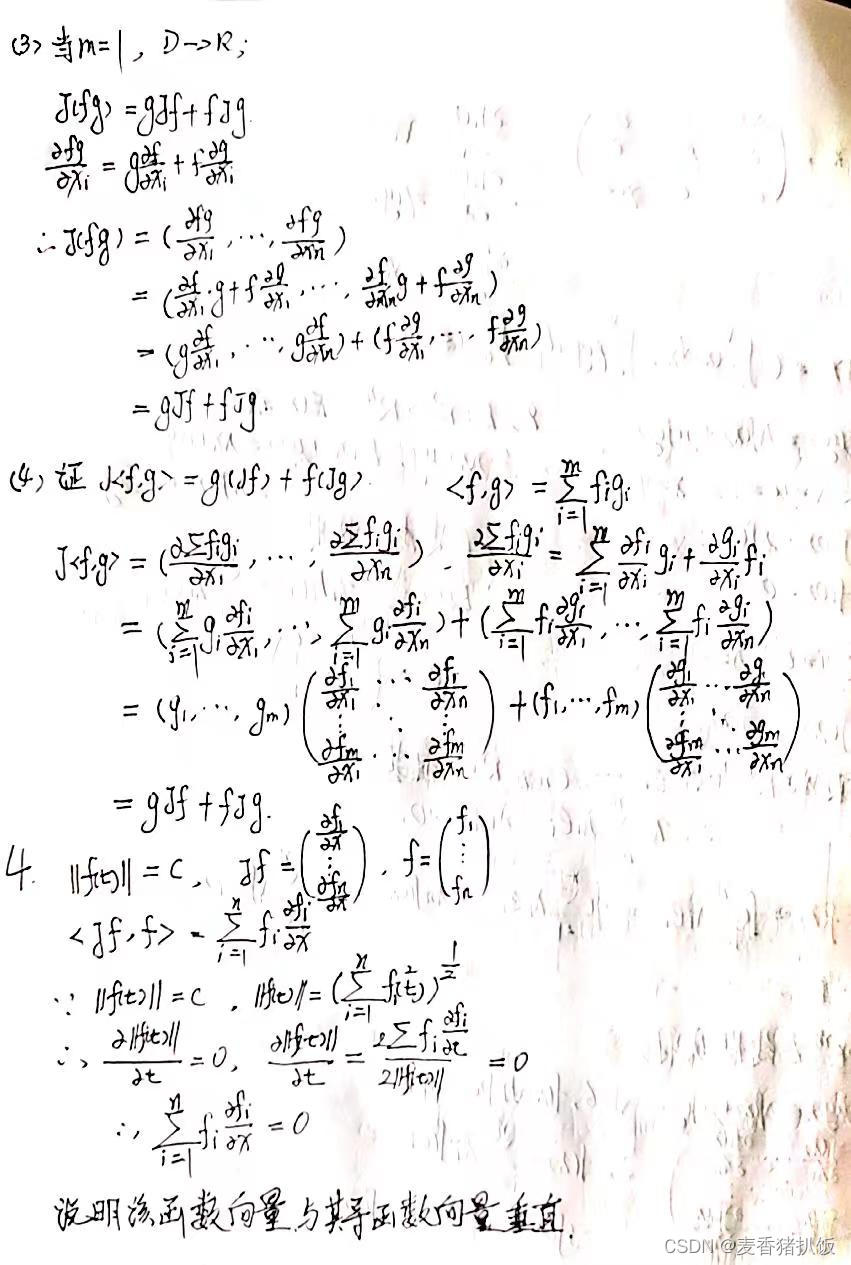 (3) 当m=1, D→R;
J(fg) = gJf + fJg.
∂fg/∂xi = g∂f/∂xi + f∂g/∂xi
∴ J(fg) = (∂fg/∂x1, ⋯, ∂fg/∂xn)
= (∂f/∂x1·g + f∂g/∂x1, ⋯, ∂f/∂xn g + f∂g/∂xn)
= (g∂f/∂x1, ⋯, g∂f/∂xn) + (f∂g/∂x1, ⋯, f∂g/∂xn)
= gJf + fJg.
(4) 证 J<f,g> = g(Jf) + f(Jg) <f,g> = ∑_{i=1}^{m} figi
J<f,g> = (∂∑figi/∂x1, ⋯, ∂∑figi/∂xn). ∂∑figi/∂xi = ∑_{i=1}^{m} ∂fi/∂xi gi + ∂gi/∂xi fi
= (∑_{i=1}^{m} gi ∂fi/∂x1, ⋯, ∑_{i=1}^{m} gi ∂fi/∂xn) + (∑_{i=1}^{m} fi ∂gi/∂x1, ⋯, ∑_{i=1}^{m} fi ∂gi/∂xn)
= (g1, ⋯, gm) (∂f1/∂x1 ⋯ ∂f1/∂xn ⋮ ⋱ ⋮ ∂fm/∂x1 ⋯ ∂fm/∂xn) + (f1, ⋯, fm) (∂g1/∂x1 ⋯ ∂g1/∂xn ⋮ ⋱ ⋮ ∂gm/∂x1 ⋯ ∂gm/∂xn)
= gJf + fJg.
4. ||f(t)|| = C, Jf = (∂f1/∂x ⋮ ∂fn/∂x), f = (f1 ⋮ fn)
<Jf, f> = ∑_{i=1}^{n} fi ∂fi/∂x
∵ ||f(t)|| = C, ||f(t)|| = (∑_{i=1}^{n} fi²(t))^{1/2}
∴ ∂||f(t)||/∂t = 0, ∂||f(t)||/∂t = 2∑fi ∂fi/∂t / 2||f(t)|| = 0
∴ ∑_{i=1}^{n} fi ∂fi/∂x = 0
说明该函数向量与其导函数向量垂直.
CSDN @麦香猪扒饭